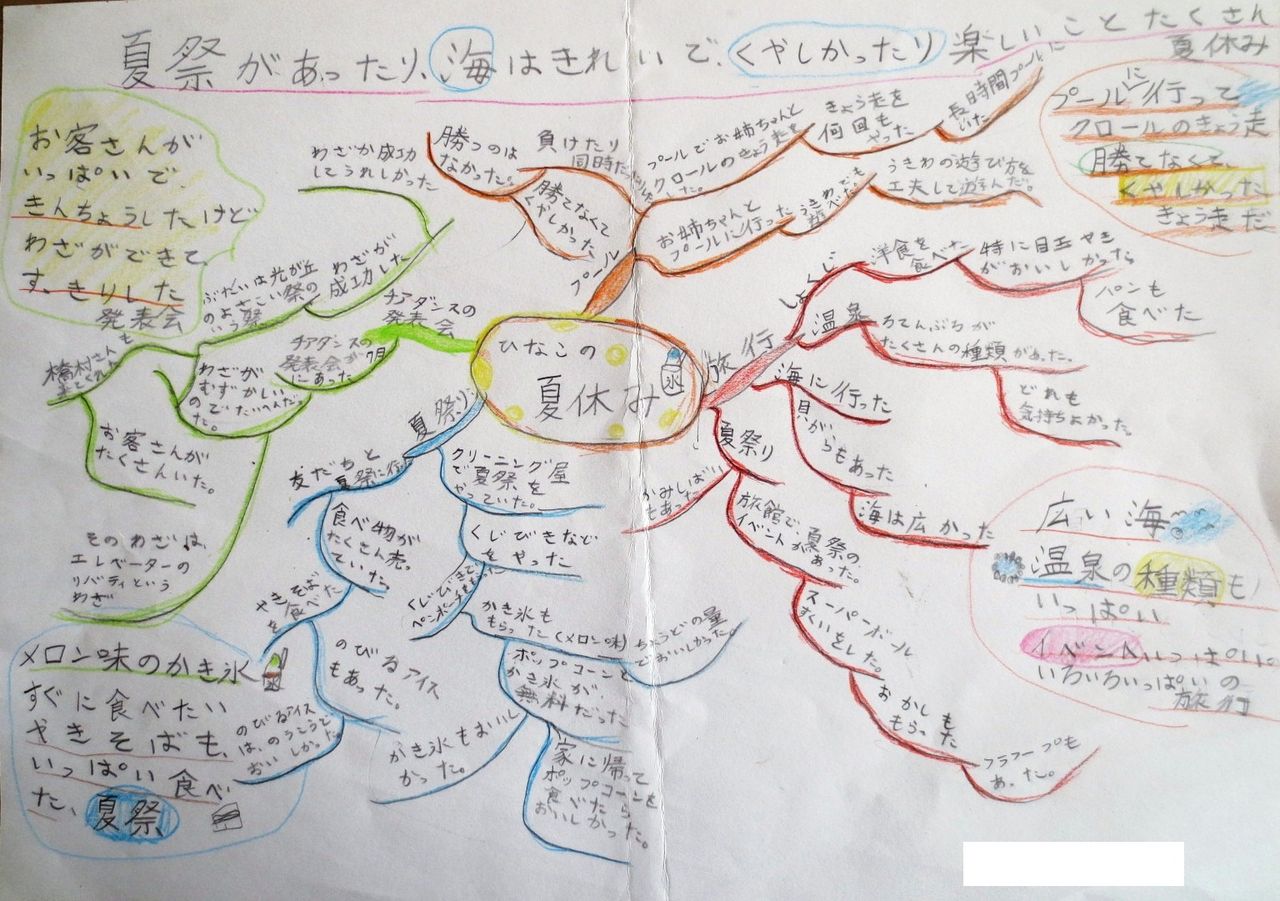 夏祭があったり、海はきれいで、くやしかったり楽しいことたくさん
夏休み
お客さんが
いっぱいで、
きんちょうしたけど
わざができて、
す、きりした
発表会
プールに行って
クロールのきょう走
勝てなくて、
くやしかった
きょう走だ
ひなこの
夏休み
氷
プール
勝つのは
なかった。
負けたり
勝てなくて
くやしかった
プールでお姉ちゃんと
クロールのきょう走を
きょう走を
何回も
やった
長時間プールに
いた
お姉ちゃんと
プールに行った
うきわでも
遊べた
うきわの遊び方を
工夫して遊んだ。
チアダンスの
発表会
わざが成功
してうれしかった
わざが
成功した
ぶたいは光が丘
のよさこい祭の
チアダンスの
発表会が7月
にあった
わざが
むずかしい
橋村さんも
来てくれた
お客さんが
たくさんいた。
そのわざは、
エレベーターの
リバティという
わざ
旅行
しょくじ
洋食を
食べた
特に目玉やき
がおいしかった
パンも
食べた
温泉
ろてんぶろが
たくさんの種類があった。
どれも
気持ちよかった。
海に行った
貝がらもあった
海は広かった
夏祭り
かみしばい
もあった
旅館で、夏祭の
イベントがあった。
スーパーボール
すくいをした。
おかしも
もらった
フラフープも
あった。
広い海
温泉の種類も
いっぱい
イベントいっぱい。
いろいろいっぱいの
旅行
夏祭り
友だちと
夏祭に行った
食べ物が
たくさん売っ
ていた
やきそば
を食べた
のびるアイス
もあった。
のびるアイス
は、のうこうで
おいしかった
クリーニング屋
で夏祭を
やっていた。
くじびきなど
をやった
くじびきで
ペンポーチもらった
かき氷も
もらった(メロン味)
ちょうどの量
でおいしかった。
かき氷もおいし
かった。
ポップコーンと
かき氷が、
無料だった
家に帰って
ポップコーンを
食べたら
おいしかった。
メロン味のかき氷
すぐに食べたい
やきそばも、
いっぱい食べ
た、夏祭